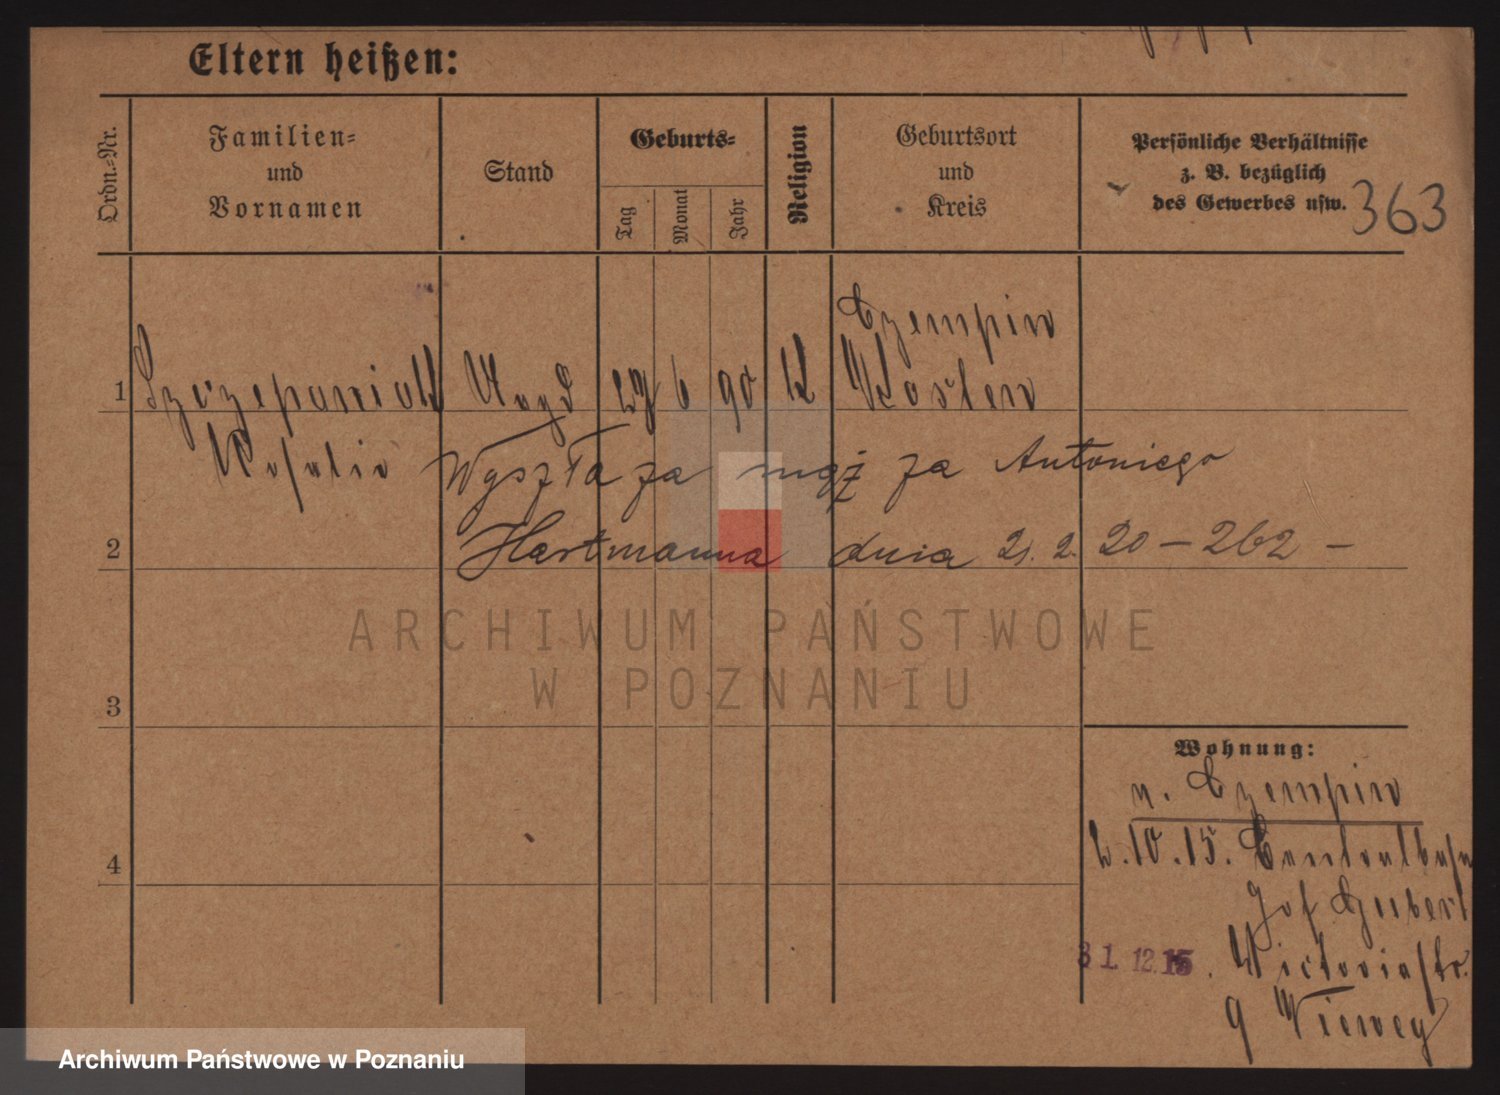 Eltern heißen:
Ordn.-Nr.
Familien-
und
Vornamen
Stand
Geburts-
Tag
Monat
Jahr
Religion
Geburtsort
und
Kreis
Persönliche Verhältnisse
z. B. bezüglich
des Gewerbes usw.
363
Czempin
1 Szczepaniak Magd 29 6 90 k Kosten
Rosalie Wyszła za mąż za Antoniego
2 Hartmanna dnia 21. 2. 20 – 262 –
ARCHIWUM PAŃSTWOWE
W POZNANIU
3
Wohnung:
n. Czempin
2.10.15. Centralbahn
hof Hubert
31.12.15. Victoriastr.
9 Vieweg
4
Archiwum Państwowe w Poznaniu